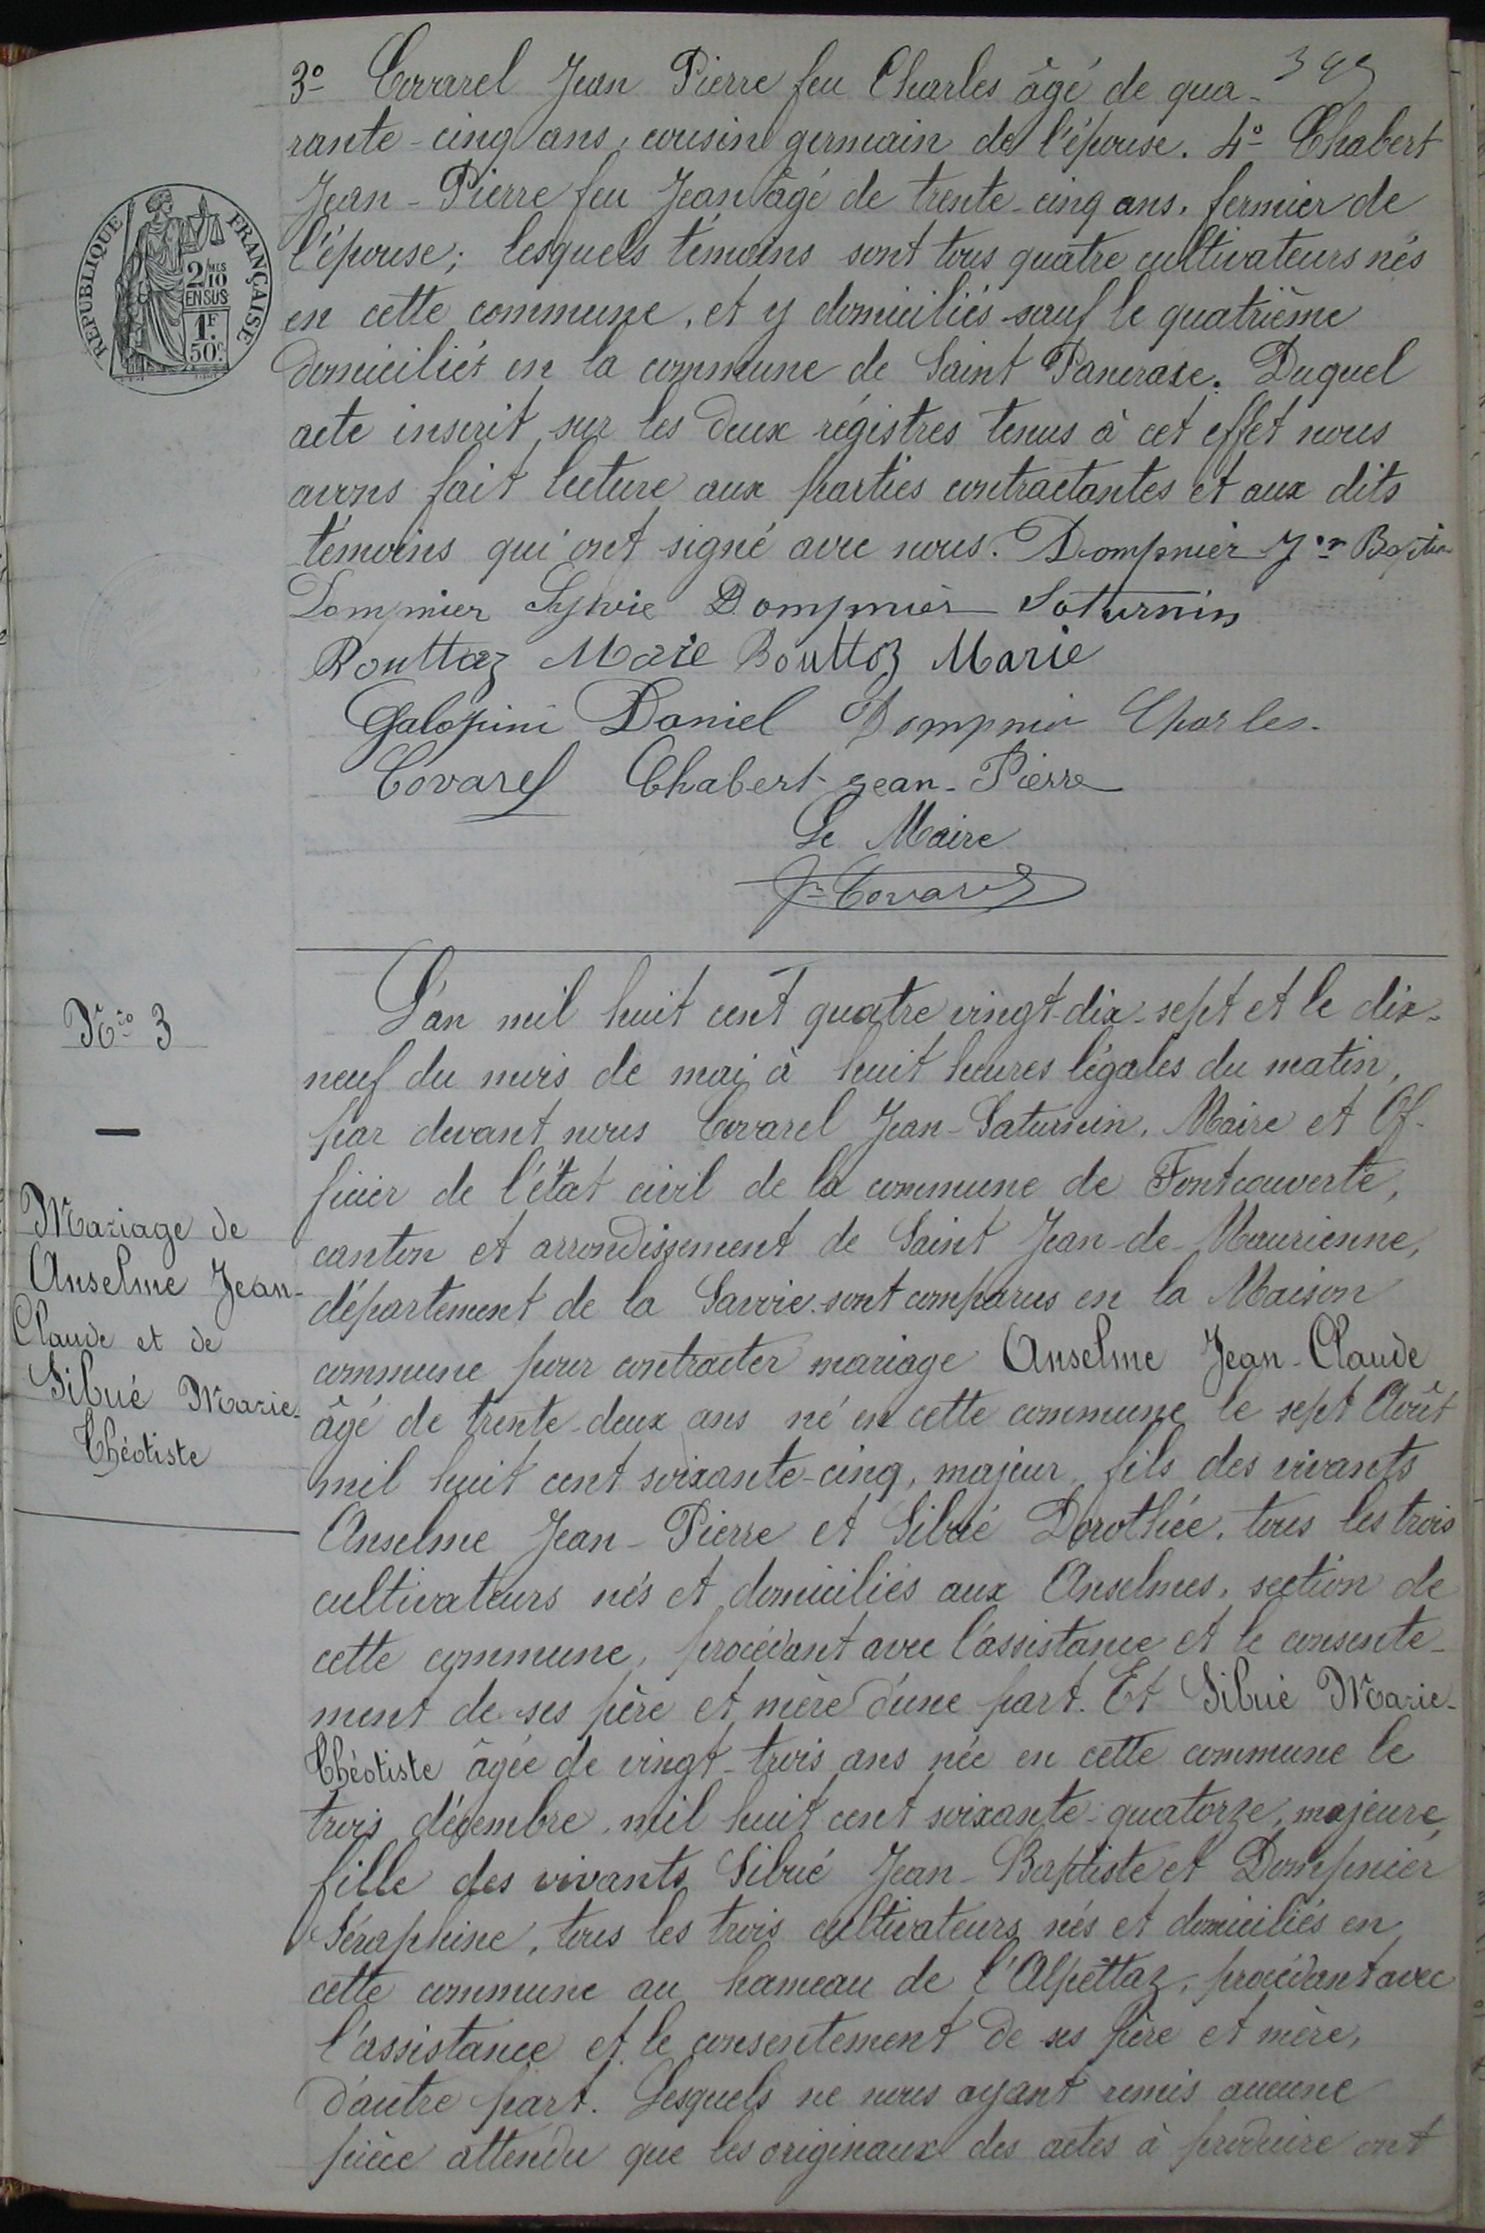 3º Covarel Jean Pierre feu Charles âgé de qua-
rante-cinq ans, cousin germain de l'épouse. 4º Chabert
Jean-Pierre feu Jean âgé de trente-cinq ans, fermier de
l'épouse; lesquels témoins sont tous quatre cultivateurs nés
en cette commune, et y domiciliés sauf le quatrième
domiciliés en la commune de Saint Pancrase. Duquel
acte inscrit sur les deux régistres tenus à cet effet nous
avons fait lecture aux parties contractantes et aux dits
témoins qui ont signé avec nous. Dompnier Jn Baptiste
Dompnier Sylvie Dompnier Saturnin
Bouttaz Marie Bouttaz Marie
Galopini Daniel Dompnier Charles.
Covarel Chabert Jean-Pierre
Le Maire
Jn Covarel
REPUBLIQUE FRANÇAISE
2/10MES
EN SUS
1F.
50C.
Nro 3
Mariage de
Anselme Jean-
Claude et de
Sibué Marie-
Théotiste
L'an mil huit cent quatre vingt-dix-sept et le dix-
neuf du mois de mai à huit heures légales du matin,
par devant nous Covarel Jean-Saturnin, Maire et Of-
ficier de l'état civil de la commune de Fontcouverte,
canton et arrondissement de Saint Jean-de-Maurienne,
département de la Savoie sont comparus en la Maison
commune pour contracter mariage Anselme Jean-Claude
âgé de trente-deux ans né en cette commune le sept Août
mil huit cent soixante-cinq, majeur, fils des vivants
Anselme Jean-Pierre et Sibué Dorothée, tous les trois
cultivateurs nés et domiciliés aux Anselmes, section de
cette commune, procédant avec l'assistance et le consente-
ment de ses père et mère d'une part. Et Sibué Marie-
Théotiste âgée de vingt-trois ans née en cette commune le
trois décembre mil huit cent soixante-quatorze, majeure,
fille des vivants Sibué Jean-Baptiste et Dompnier
Séraphine, tous les trois cultivateurs nés et domiciliés en
cette commune au hameau de l'Alpettaz, procédant avec
l'assistance et le consentement de ses père et mère,
d'autre part. Lesquels ne nous ayant remis aucune
pièce attendu que les originaux des actes à produire ont